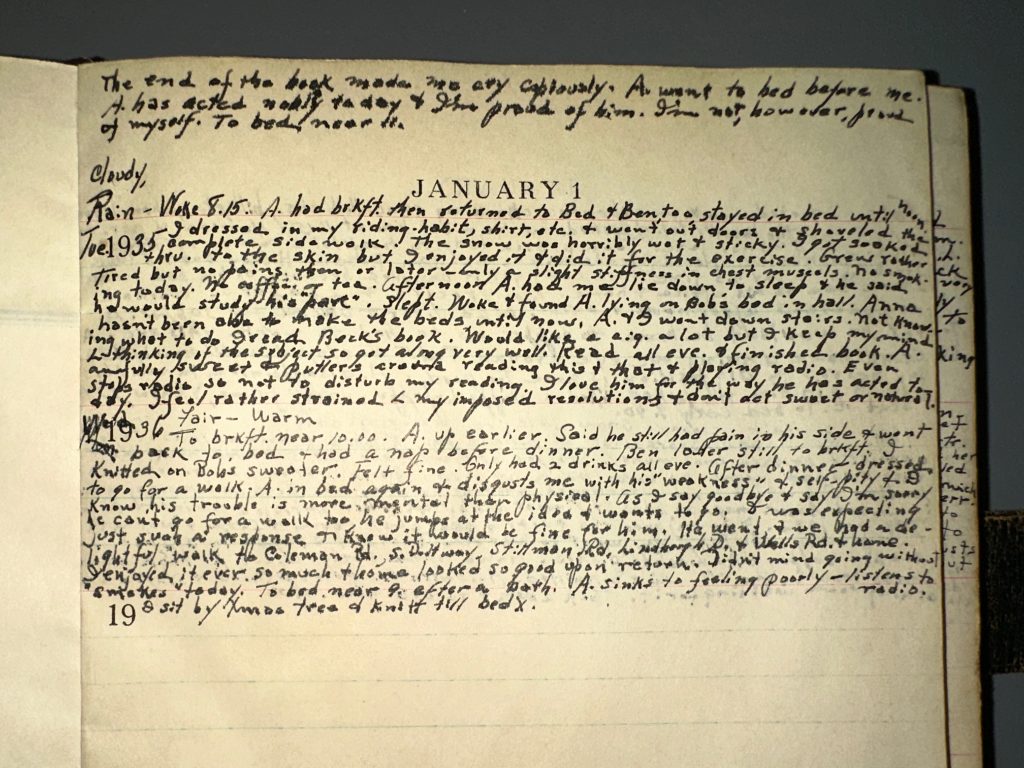 The end of the book made me cry copiously. A. went to bed before me.
A. has acted nobly today & I'm proud of him. I'm not, however, proud
of myself. To bed near 11.
Cloudy,
JANUARY 1
Rain - Woke 8.15. A. had brkft. then returned to Bed & Ben too, stayed in bed until noon.
I dressed in my riding-habit, shirt, etc. & went out doors & shoveled the
Tue 1935 complete side walk. The snow was horribly wet & sticky. I got soaked
thru. to the skin but I enjoyed it & did it for the exercise. Grew rather
tired but no pains then or later - only a slight stiffness in chest muscels. No smok-
ing today. No coffee or tea. Afternoon A. had me lie down to sleep & he said
he would study his . Slept. Woke & found A. lying on Bob's bed in hall. Anna
hasn't been able to make the beds until now. A. & I went down stairs. Not know-
ing what to do I read Beck's book. Would like a cig. a lot but I keep my mind
thinking of the subject so got along very well. Read all eve. & finished book. A.
awfully sweet & putters around reading this & that & playing radio. Even
stops radio so not to disturb my reading. I love him for the way he has acted to-
day. I feel rather strained my imposed resolutions & don't act sweet or natural.
Wed. 1936 Fair - Warm
To brkft. near 10.00. A. up earlier. Said he still had pain in his side & went
back to bed & had a nap before dinner. Ben later still to brkft. I
knitted on Bobs sweater. Felt fine. Only had 2 drinks all eve. After dinner dressed
to go for a walk. A. in bed again & disgusts me with his "weakness" & self-pity & I
know his trouble is more mental than physical. As I say goodbye & say I'm sorry
he cant go for a walk too he jumps at the idea & wants to go. I was expecting
just such a response & knew it would be fine for him. He went & we had a de-
lightful walk to Coleman Rd, Stillman Rd, Lindbergh & Wells Rd. & home.
I enjoyed it ever so much & home looked so good upon return. Didn't mind going without
"smokes" today. To bed near 9 after a bath. A. sinks to feeling poorly - listens to
radio.
19 & sit by Xmas tree & knitt till bed.